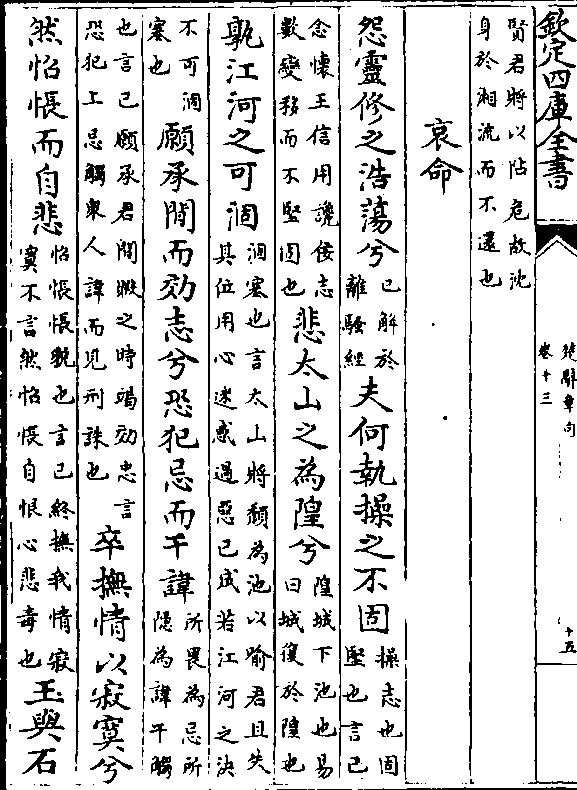 欽定四庫全書
楚辭章句
卷十三
十五
賢君將以阽危故沈
身於湘流而不還也
哀命
怨靈修之浩蕩兮
已解於
離騷經
夫何執操之不固
操志也固
堅也言己
念懷王信用讒佞志
數變移而不堅固也
悲太山之為隍兮
隍城下池也易
曰城復於隍也
孰江河之可涸
涸塞也言太山將頹為池以喻君且失
其位用心迷惑過惡已成若江河之決
不可涸
塞也
願承閒而効志兮恐犯忌而干諱
所畏為忌所
隱為諱干觸
也言己願承君閒暇之時竭効忠言
恐犯上忌觸衆人諱而見刑誅也
卒撫情以寂寞兮
然怊悵而自悲
怊悵悵貌也言己終撫我情寂
寞不言然怊悵自恨心悲毒也
玉與石